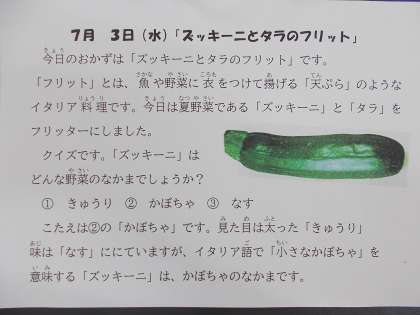 7月　3日(水)「ズッキーニとタラのフリット」
今日のおかずは「ズッキーニとタラのフリット」です。
「フリット」とは、魚や野菜に衣をつけて揚げる「天ぷら」のような
イタリア料理です。今日は夏野菜である「ズッキーニ」と「タラ」を
フリッターにしました。
クイズです。「ズッキーニ」は
どんな野菜のなかまでしょうか？
①　きゅうり　②　かぼちゃ　③　なす
こたえは②の「かぼちゃ」です。見た目は太った「きゅうり」
味は「なす」ににていますが、イタリア語で「小さなかぼちゃ」を
意味する「ズッキーニ」は、かぼちゃのなかまです。